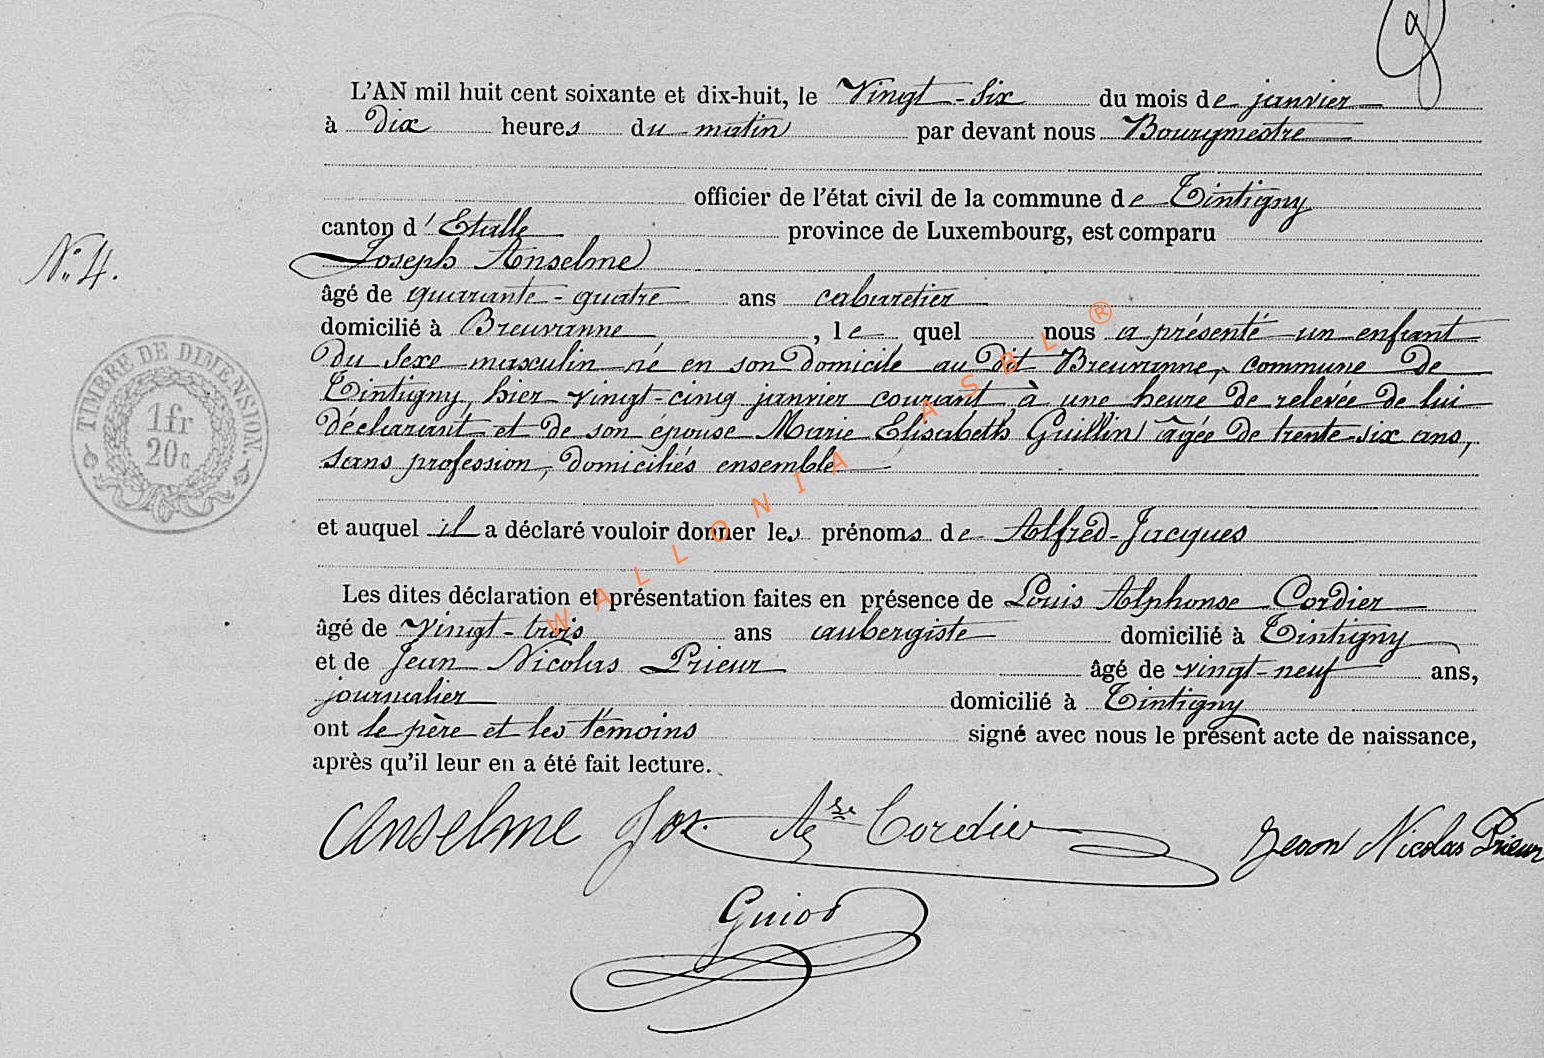 L'AN mil huit cent soixante et dix-huit, le Vingt-six du mois de janvier
à dix heures du matin par devant nous Bourgmestre
officier de l'état civil de la commune de Tintigny
canton d'Etalle province de Luxembourg, est comparu
N° 4.
Joseph Anselme
âgé de quarante-quatre ans cabaretier
domicilié à Breuvanne, le quel nous a présenté un enfant
du sexe masculin né en son domicile au dit Breuvanne, commune de
Tintigny, hier vingt-cinq janvier courant, à une heure de relevée de lui
déclarant et de son épouse Marie Elisabeth Guillin âgée de trente-six ans,
sans profession, domiciliés ensemble
et auquel il a déclaré vouloir donner les prénoms de Alfred-Jacques
Les dites déclaration et présentation faites en présence de Louis Alphonse Cordier
âgé de vingt-trois ans aubergiste domicilié à Tintigny
et de Jean Nicolas Prieur âgé de vingt-neuf ans,
journalier domicilié à Tintigny
ont le père et les témoins signé avec nous le présent acte de naissance,
après qu'il leur en a été fait lecture.
Anselme Jos. Cordier Jean Nicolas Prieur
TIMBRE DE DIMENSION.
1 fr
20 c
WALLONIA ASBL ®